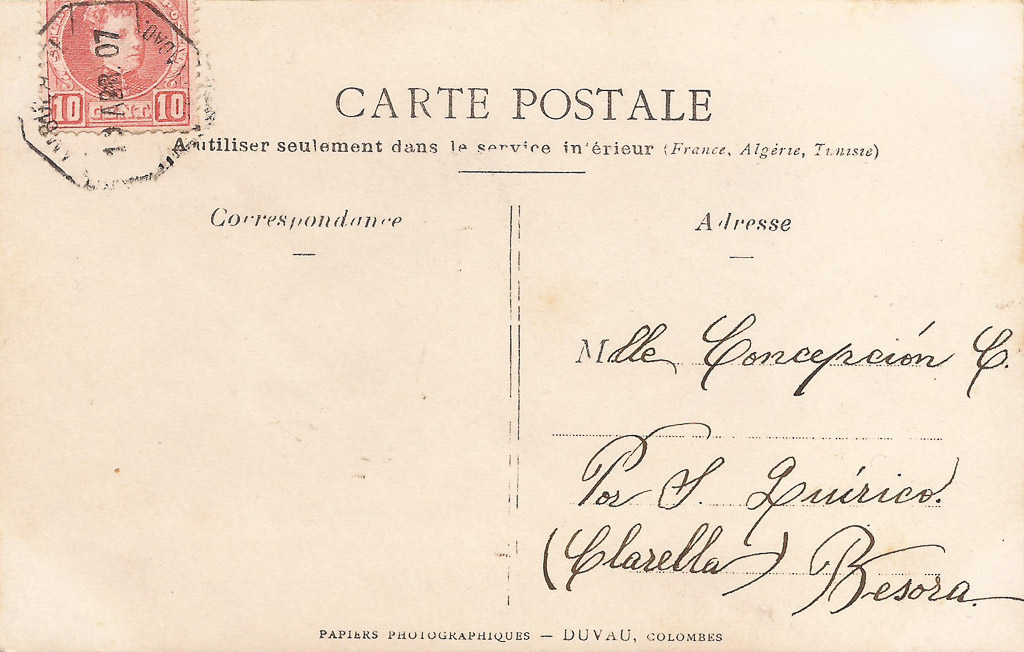 10 CENT 10
13 ABR. 07
CARTE POSTALE
A utiliser seulement dans le service intérieur (France, Algérie, Tunisie)
Correspondance
Adresse
Mlle Concepción C.
Por S. Quírico.
(Clarella) Besora
PAPIERS PHOTOGRAPHIQUES — DUVAU, COLOMBES